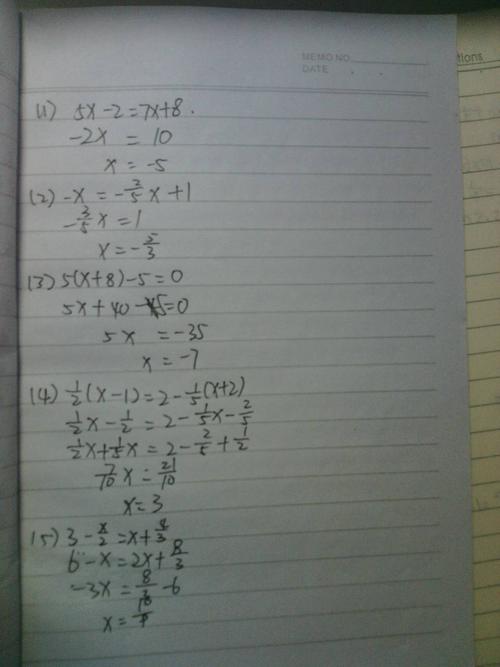 MEMO NO.
DATE
tions
(1) 5x-2=7x+8.
-2x = 10
x = -5
(2) -x = -2/5 x +1
-3/5 x = 1
x = -5/3
(3) 5(x+8)-5=0
5x+40-5=0
5x = -35
x = -7
(4) 1/2(x-1)=2-1/5(x+2)
1/2x-1/2=2-1/5x-2/5
1/2x+1/5x=2-2/5+1/2
7/10x=21/10
x=3
(5) 3-x/2=x+4/3
6-x=2x+8/3
-3x=8/3-6